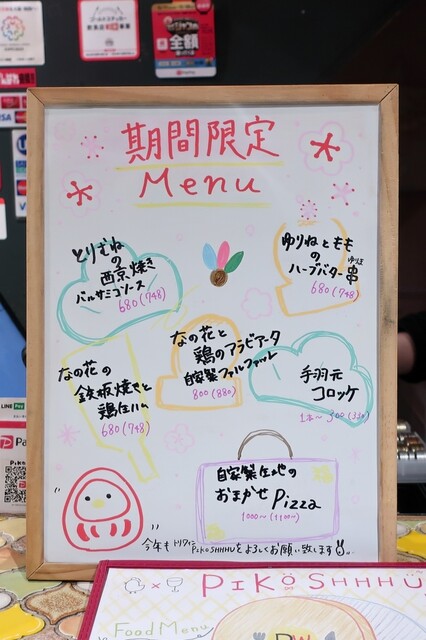 期間限定
Menu
とりむねの
西京焼き
バルサミコソース
680(748)
ゆりねともも
の
ハーブバター串
680(748)
なの花と
鶏のアラビアータ
自家製ファルファッレ
800(880)
なの花の
鉄板焼きと
鶏生ハム
680(748)
手羽元
コロッケ
1本〜300(330)
自家製生地の
おまかせ Pizza
1000〜(1100)
今年もトリワイン
PIKŌSHHHUをよろしくお願い致します
PIKŌSHHHU
Food Menu
全額
VISA
LINE Pay